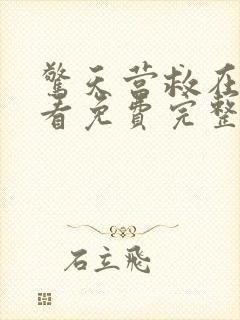 驚天营救在
看免費完整
石立飛